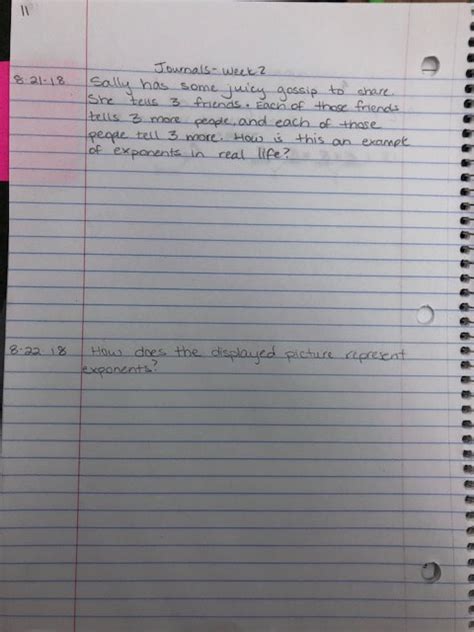 11
Journals - Week 2
8-21-18 Sally has some juicy gossip to share.
She tells 3 friends. Each of those friends
tells 3 more people, and each of those
people tell 3 more. How is this an example
of exponents in real life?
8-22-18 How does the displayed picture represent
exponents?